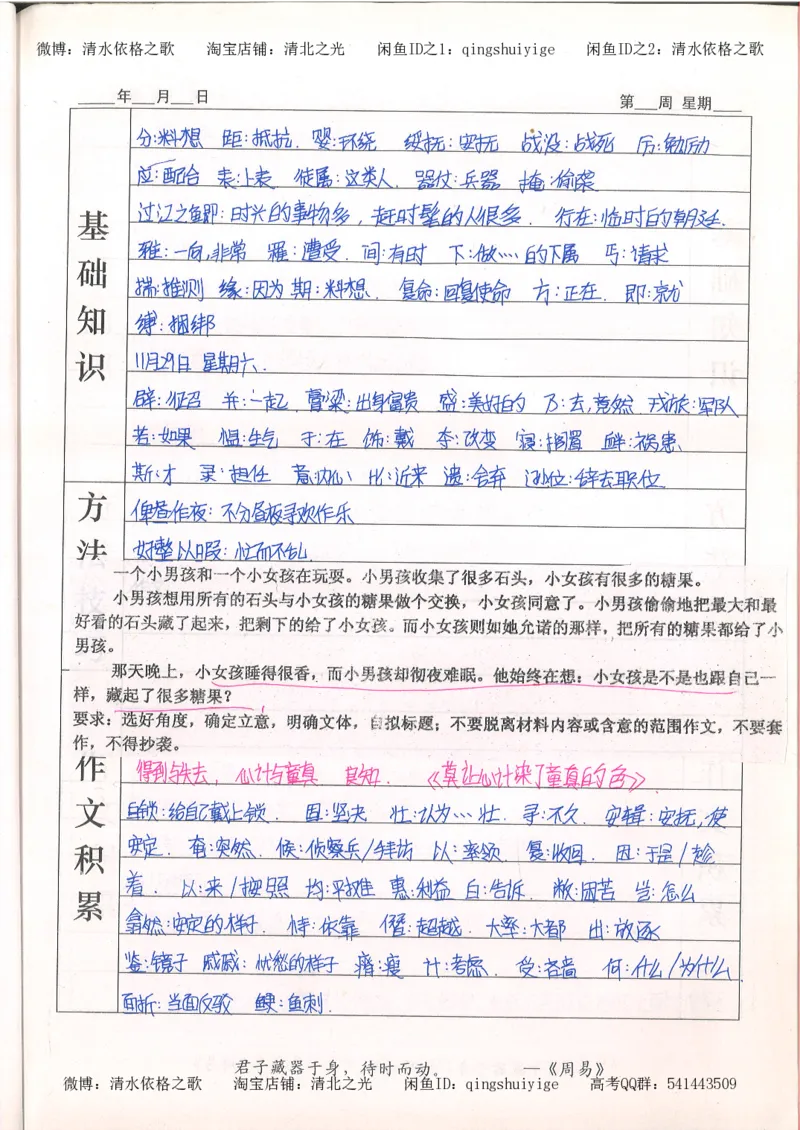 微博：清水依格之歌 淘宝店铺：清北之光 闲鱼ID之1：qingshuiyige 闲鱼ID之2：清水依格之歌
年 月 日 第 周 星期
基础知识
分:料想 距:抵抗. 婴:环绕 绥抚:安抚 战没:战死 厉:勉励
应:配合 表:上表 徒属:这类人. 器仗:兵器 掩:偷袭
过江之鲫:时兴的事物多,赶时髦的人很多. 行在:临时的朝廷.
雅:一向,非常 罹:遭受. 间:有时 下:做……的下属 丐:请求
揣:推测 缘:因为 期:料想. 复命:回复使命 方:正在. 即:就
缚:捆绑
11月29日 星期六.
辟:征召 并:一起. 膏粱:出身富贵 盛:美好的 乃:去,竟然 戎旅:军队
若:如果 愠:生气 于:在 饰:戴 夺:改变 寝:搁置 衅:祸患.
斯:才 录:担任 意:内心 比:近来 遗:舍弃 逊位:辞去职位
方法
俾昼作夜:不分昼夜寻欢作乐
好整以暇:忙而不乱.
一个小男孩和一个小女孩在玩耍。小男孩收集了很多石头，小女孩有很多的糖果。
小男孩想用所有的石头与小女孩的糖果做个交换，小女孩同意了。小男孩偷偷地把最大和最
好看的石头藏了起来，把剩下的给了小女孩。而小女孩则如她允诺的那样，把所有的糖果都给了小
男孩。
那天晚上，小女孩睡得很香，而小男孩却彻夜难眠。他始终在想：小女孩是不是也跟自己一
样，藏起了很多糖果？
要求：选好角度，确定立意，明确文体，自拟标题；不要脱离材料内容或含意的范围作文，不要套
作，不得抄袭。
作文积累
得到与失去, 心计与童真 《莫让心计染了童真的色》
自锁:给自己戴上锁. 固:坚决 壮:认为…壮. 寻:不久. 安辑:安抚,使
安定. 奄:突然. 候:侦察兵/拜访 以:率领. 复:收回. 因:于是/趁
着. 以:来/按照 均:平摊 惠:利益 白:告诉. 敝:困苦 岂:怎么
翕然:安定的样子. 恃:依靠 僭:超越. 大率:大都 出:放逐
鉴:镜子 戚戚:忧愁的样子 瘠:瘦 计:考虑. 爱:吝啬 何:什么/为什么.
面折:当面反驳 鲠:鱼刺.
君子藏器于身，待时而动。 —《周易》
微博：清水依格之歌 淘宝店铺：清北之光 闲鱼ID：qingshuiyige 高考QQ群：541443509